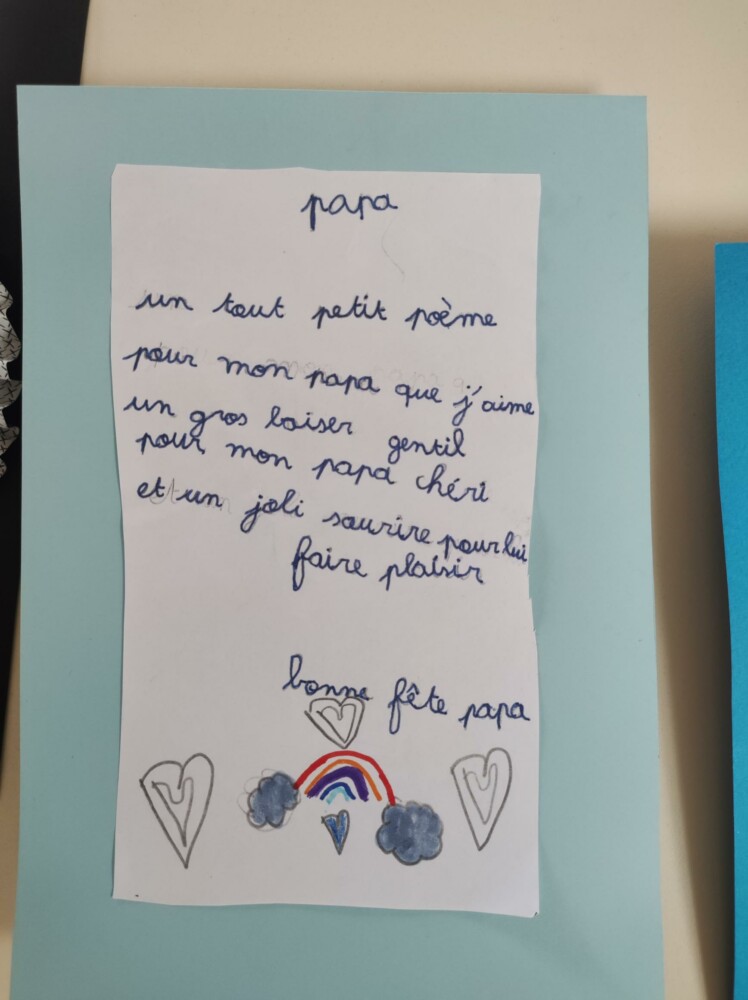 papa
un tout petit poème
pour mon papa que j'aime
un gros baiser gentil
pour mon papa chéri
et un joli sourire pour lui
faire plaisir
bonne fête papa